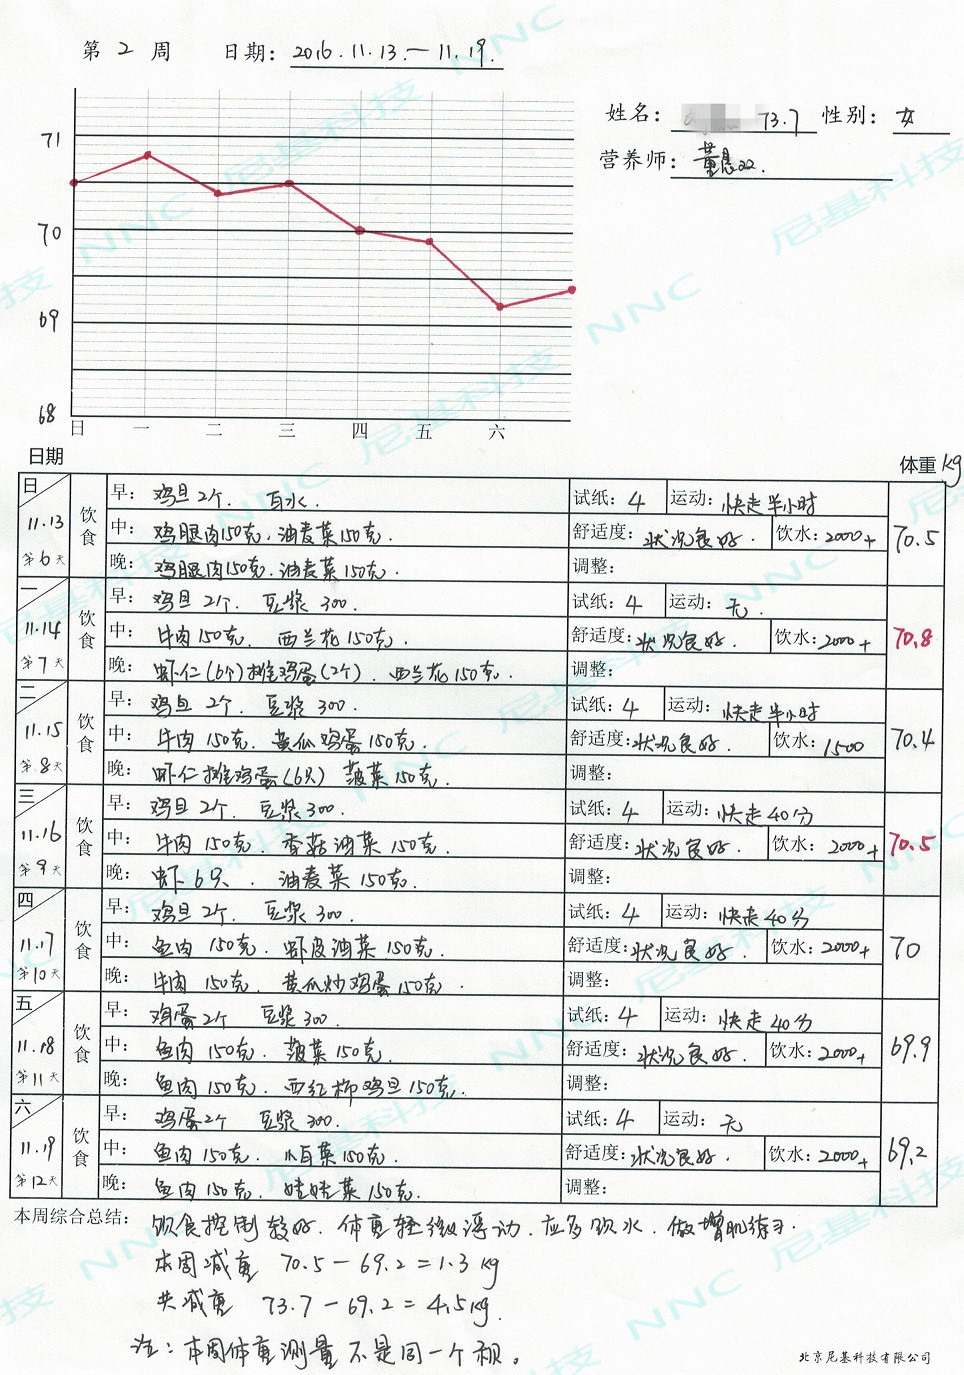 第 2 周 日期: 2016.11.13.一 11.19.
姓名: 73.7 性别: 女
营养师:
71
70
69
68
日 一 二 三 四 五 六
日期 体重 kg
日 11.13 第6天 饮食
早: 鸡旦2个. 豆水. 试纸: 4 运动: 快走半小时
中: 鸡腿肉150克.油麦菜150克. 舒适度: 状况良好. 饮水: 2000+ 70.5
晚: 鸡腿肉150克.油麦菜150克. 调整:
一 11.14 第7天 饮食
早: 鸡旦2个. 豆浆300. 试纸: 4 运动: 无.
中: 牛肉150克. 西兰花150克. 舒适度: 状况良好. 饮水: 2000+ 70.8
晚: 虾仁(6个)摊鸡蛋(2个). 西兰花150克. 调整:
二 11.15 第8天 饮食
早: 鸡旦2个. 豆浆300. 试纸: 4 运动: 快走半小时
中: 牛肉150克. 黄瓜鸡蛋150克. 舒适度: 状况良好. 饮水: 1500 70.4
晚: 虾仁摊鸡蛋(6只) 菠菜150克. 调整:
三 11.16 第9天 饮食
早: 鸡旦2个. 豆浆300. 试纸: 4 运动: 快走40分
中: 牛肉150克. 香菇油菜150克. 舒适度: 状况良好. 饮水: 2000+ 70.5
晚: 虾6只. 油麦菜150克. 调整:
四 11.17 第10天 饮食
早: 鸡旦2个. 豆浆300. 试纸: 4 运动: 快走40分
中: 鱼肉150克. 虾皮油菜150克. 舒适度: 状况良好. 饮水: 2000+ 70
晚: 牛肉150克. 黄瓜炒鸡蛋150克. 调整:
五 11.18 第11天 饮食
早: 鸡蛋2个 豆浆300. 试纸: 4 运动: 快走40分
中: 鱼肉150克. 菠菜150克. 舒适度: 状况良好. 饮水: 2000+ 69.9
晚: 鱼肉150克. 西红柿鸡旦150克. 调整:
六 11.19 第12天 饮食
早: 鸡蛋2个 豆浆300. 试纸: 4 运动: 无
中: 鱼肉150克. 菜150克. 舒适度: 状况良好. 饮水: 2000+ 69.2
晚: 鱼肉150克. 娃娃菜150克. 调整:
本周综合总结: 饮食控制较好. 体重轻微浮动. 应多饮水. 做增肌练习.
本周减重 70.5－69.2＝1.3 kg
共减重 73.7－69.2＝4.5kg.
注: 本周体重测量不是同一个秤。
北京尼基科技有限公司
NNC 尼基科技